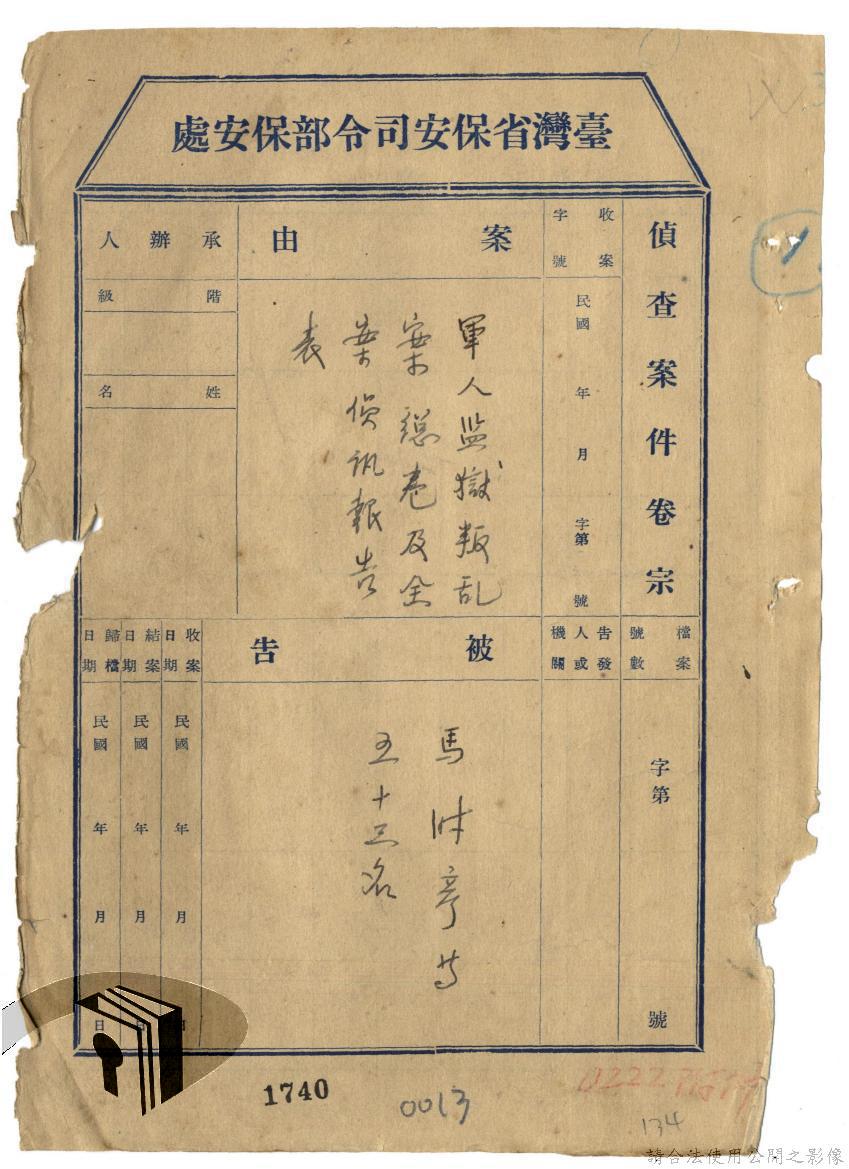 臺灣省保安司令部保安處
偵查案件卷宗
收案
字號
民國　年　月　字第　號
案由
軍人監獄叛乱
案總卷及全
案偵訊報告
表
承辦人
階級
姓名
檔案
號數
字第　號
告發
人或
機關
被告
馬時彥等
五十三名
收案
日期
民國　年　月　日
結案
日期
民國　年　月　日
歸檔
日期
民國　年　月　日
1740
0013
134
請合法使用公開之影像